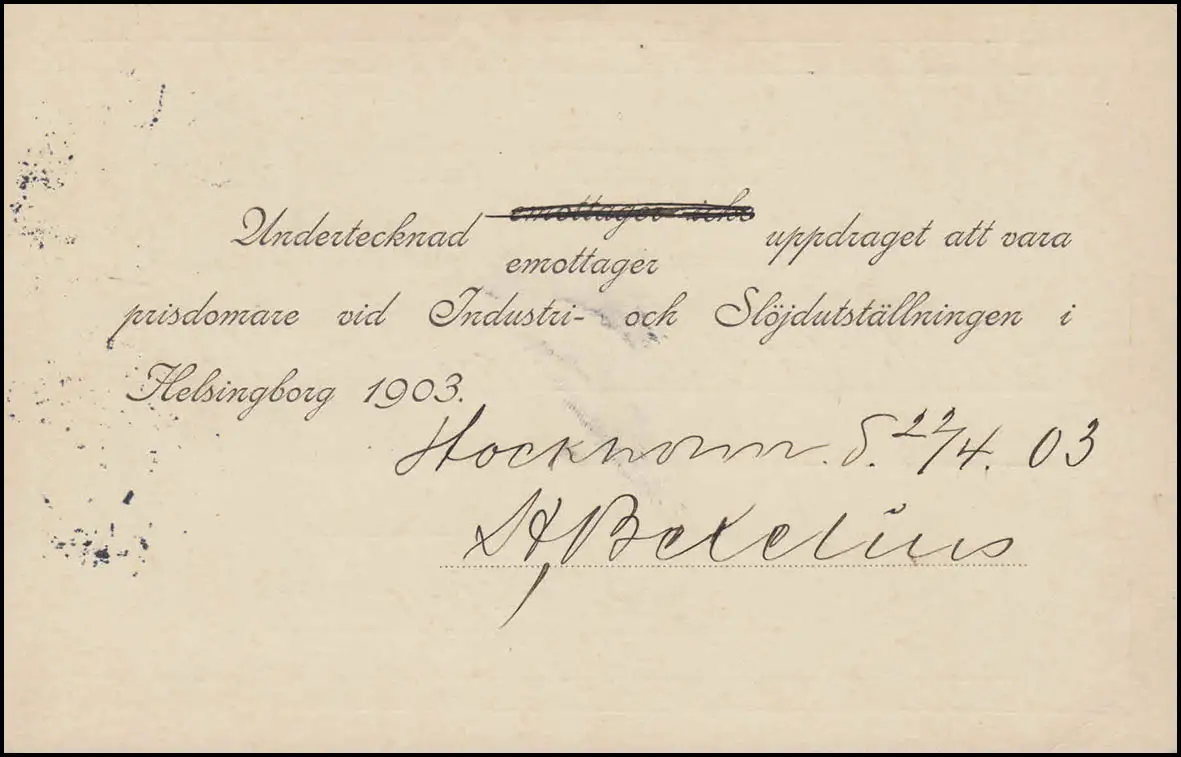 Undertecknad emottager icke uppdraget att vara
emottager
prisdomare vid Industri- och Slöjdutställningen i
Helsingborg 1903.
Stockholm. d. 22/4. 03